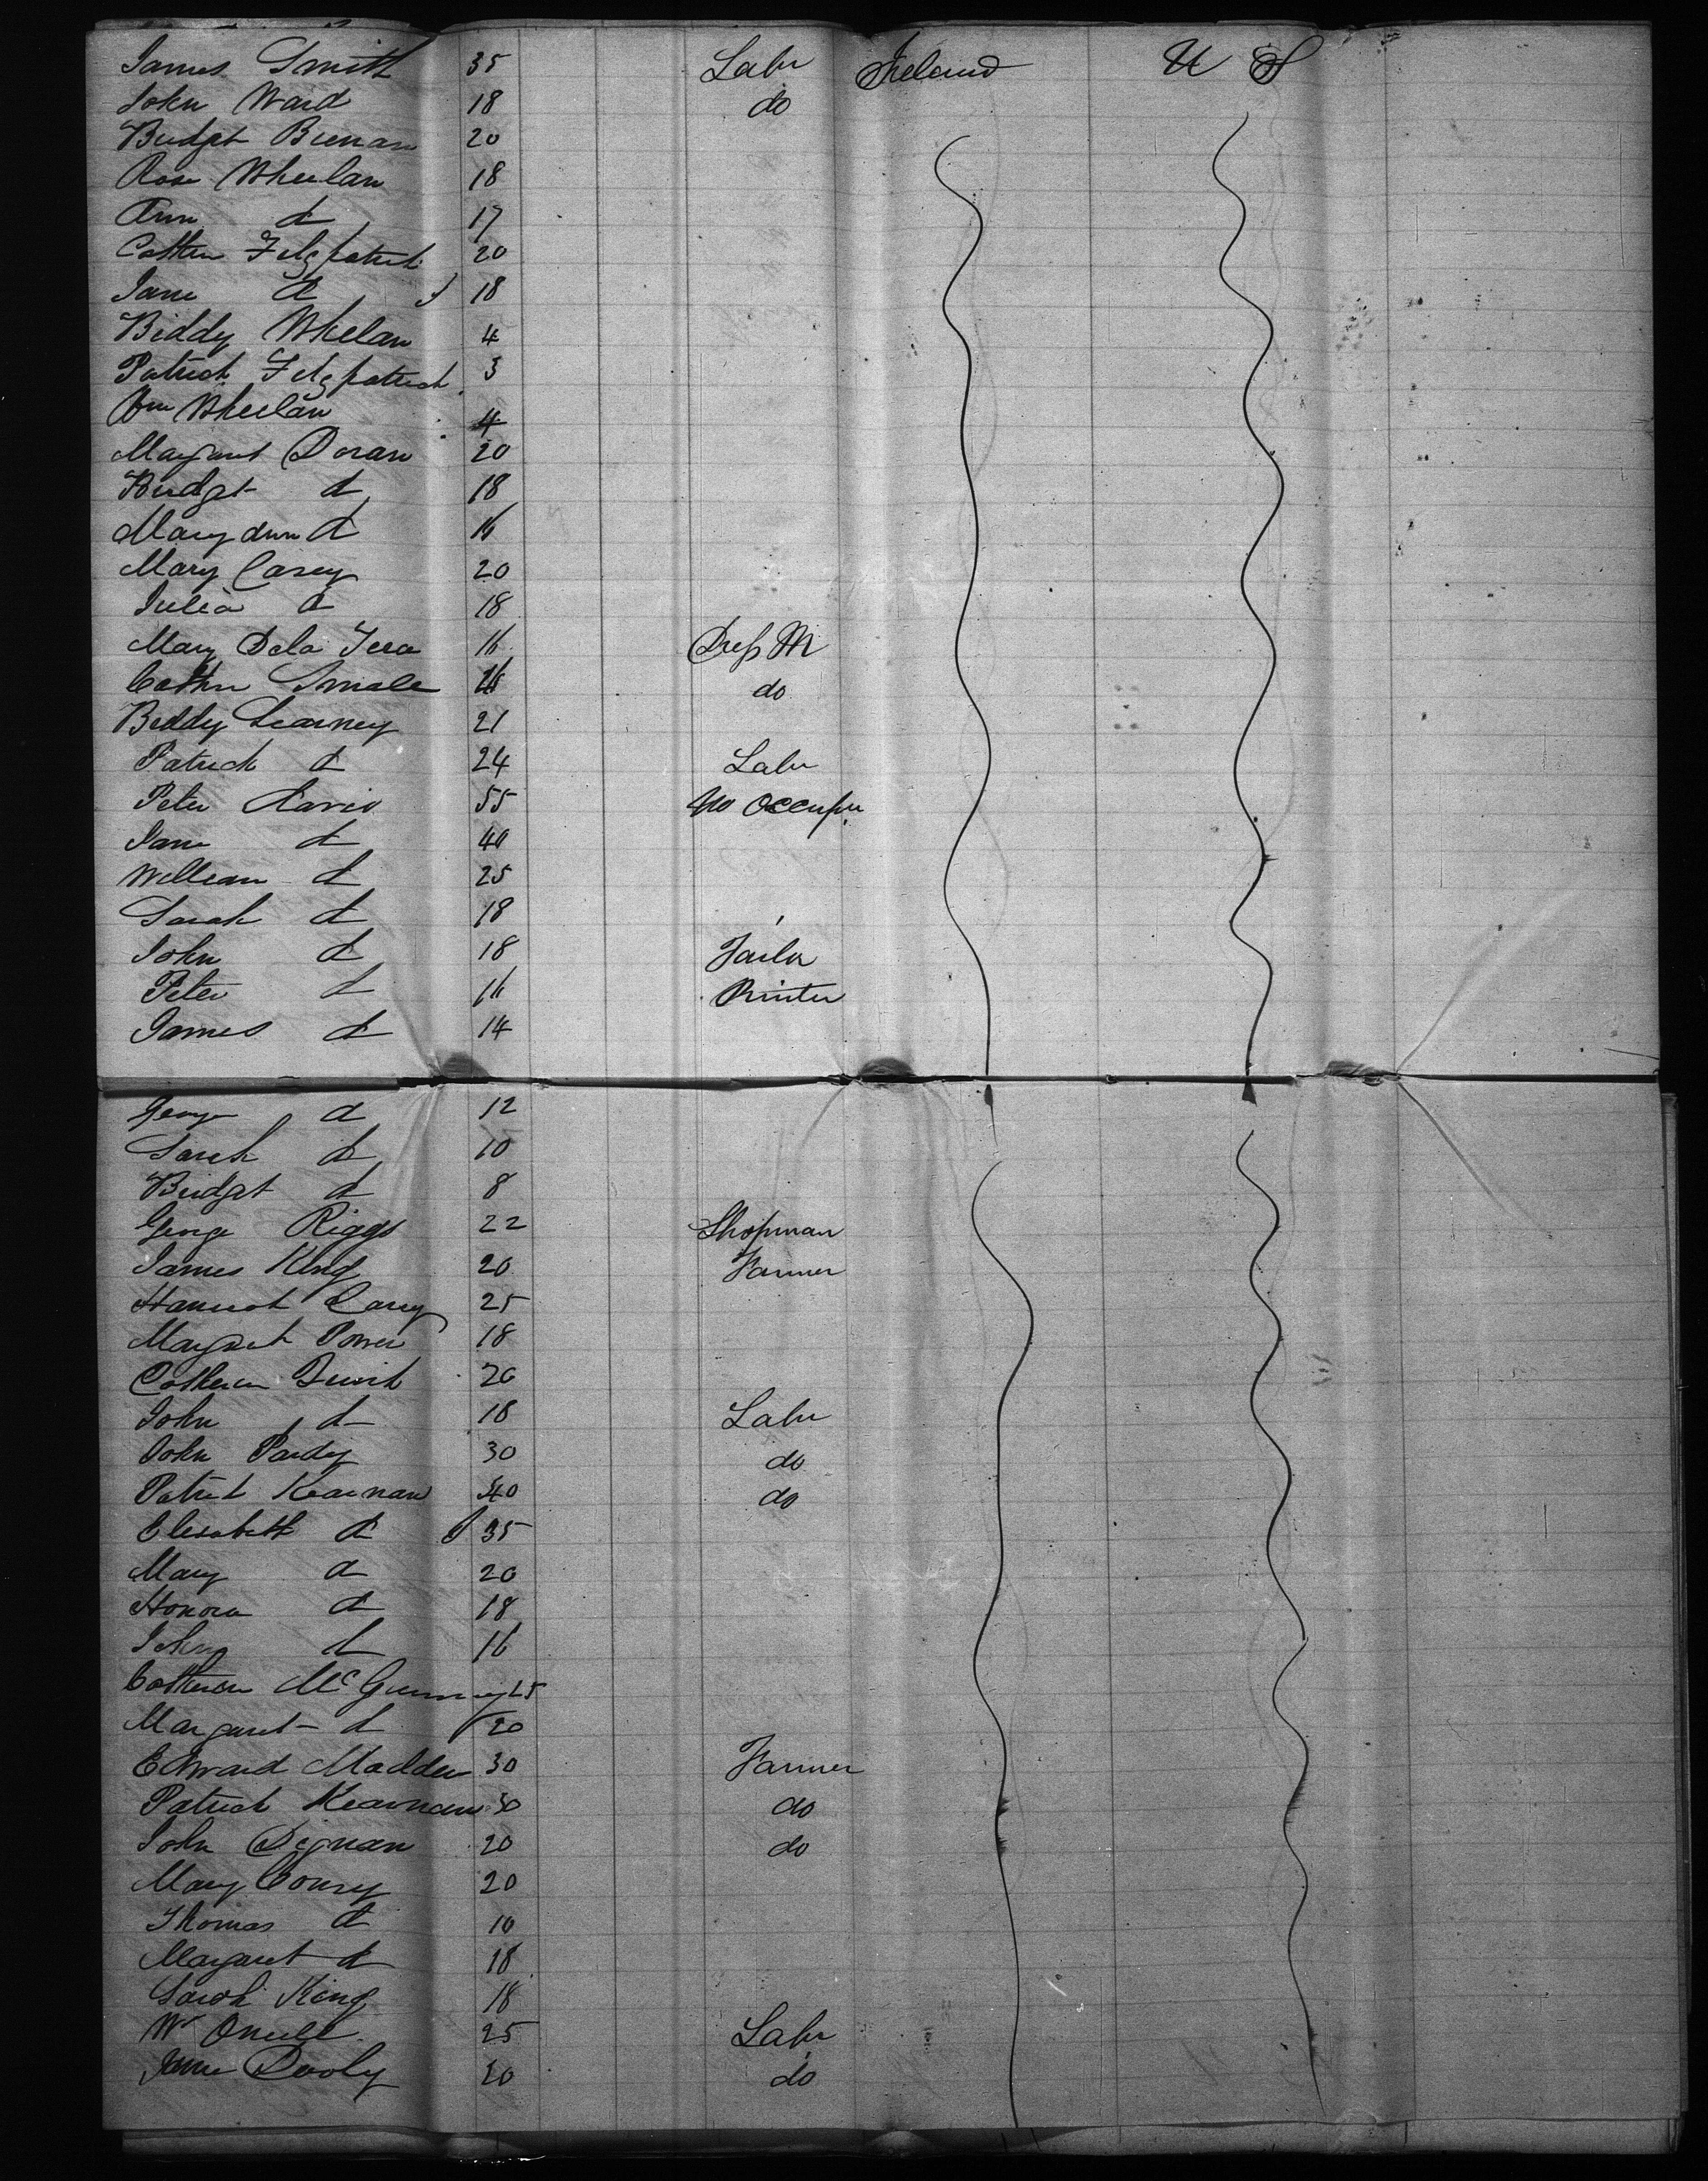 James Smith 35 Labr Ireland U S
John Ward 18 do
Bridget Brenan 20
Rose Wheelan 18
Ann do 17
Cathn Fitzpatrick 20
Jane do 18
Biddy Whelan 4
Patrick Fitzpatrick 3
Wm Wheelan 4
Margaret Doran 20
Bridget do 18
Mary Ann do 16
Mary Casey 20
Julia do 18
Mary Dela 16 Dress M
Cathn Smale do
Biddy Kearney 21
Patrick do 24 Labr
Peter 55 No Occupn
Jane do 40
William do 25
Sarah do 18
John do 18 Tailor
Peter do 16 Printer
James do 14
George do 12
Sarah do 10
Bridget do 8
George Riggs 22 Shopman
James King 20 Farmer
Hannah 25
Margaret Power 18
Catheren 20
John do 18 Labr
John Purdy 30 do
Patrick Kearnan 40 do
Elesabeth do 35
Mary do 20
Honora do 18
John do 16
Catheren 25
Margaret do 20
Edward Madden 30 Farmer
Patrick Kearnan 30 do
John Dignan 20 do
Mary Conry 20
Thomas do 10
Margaret do 18
Sarah King 18
Wm Oneill 25 Labr
Dooly 20 do